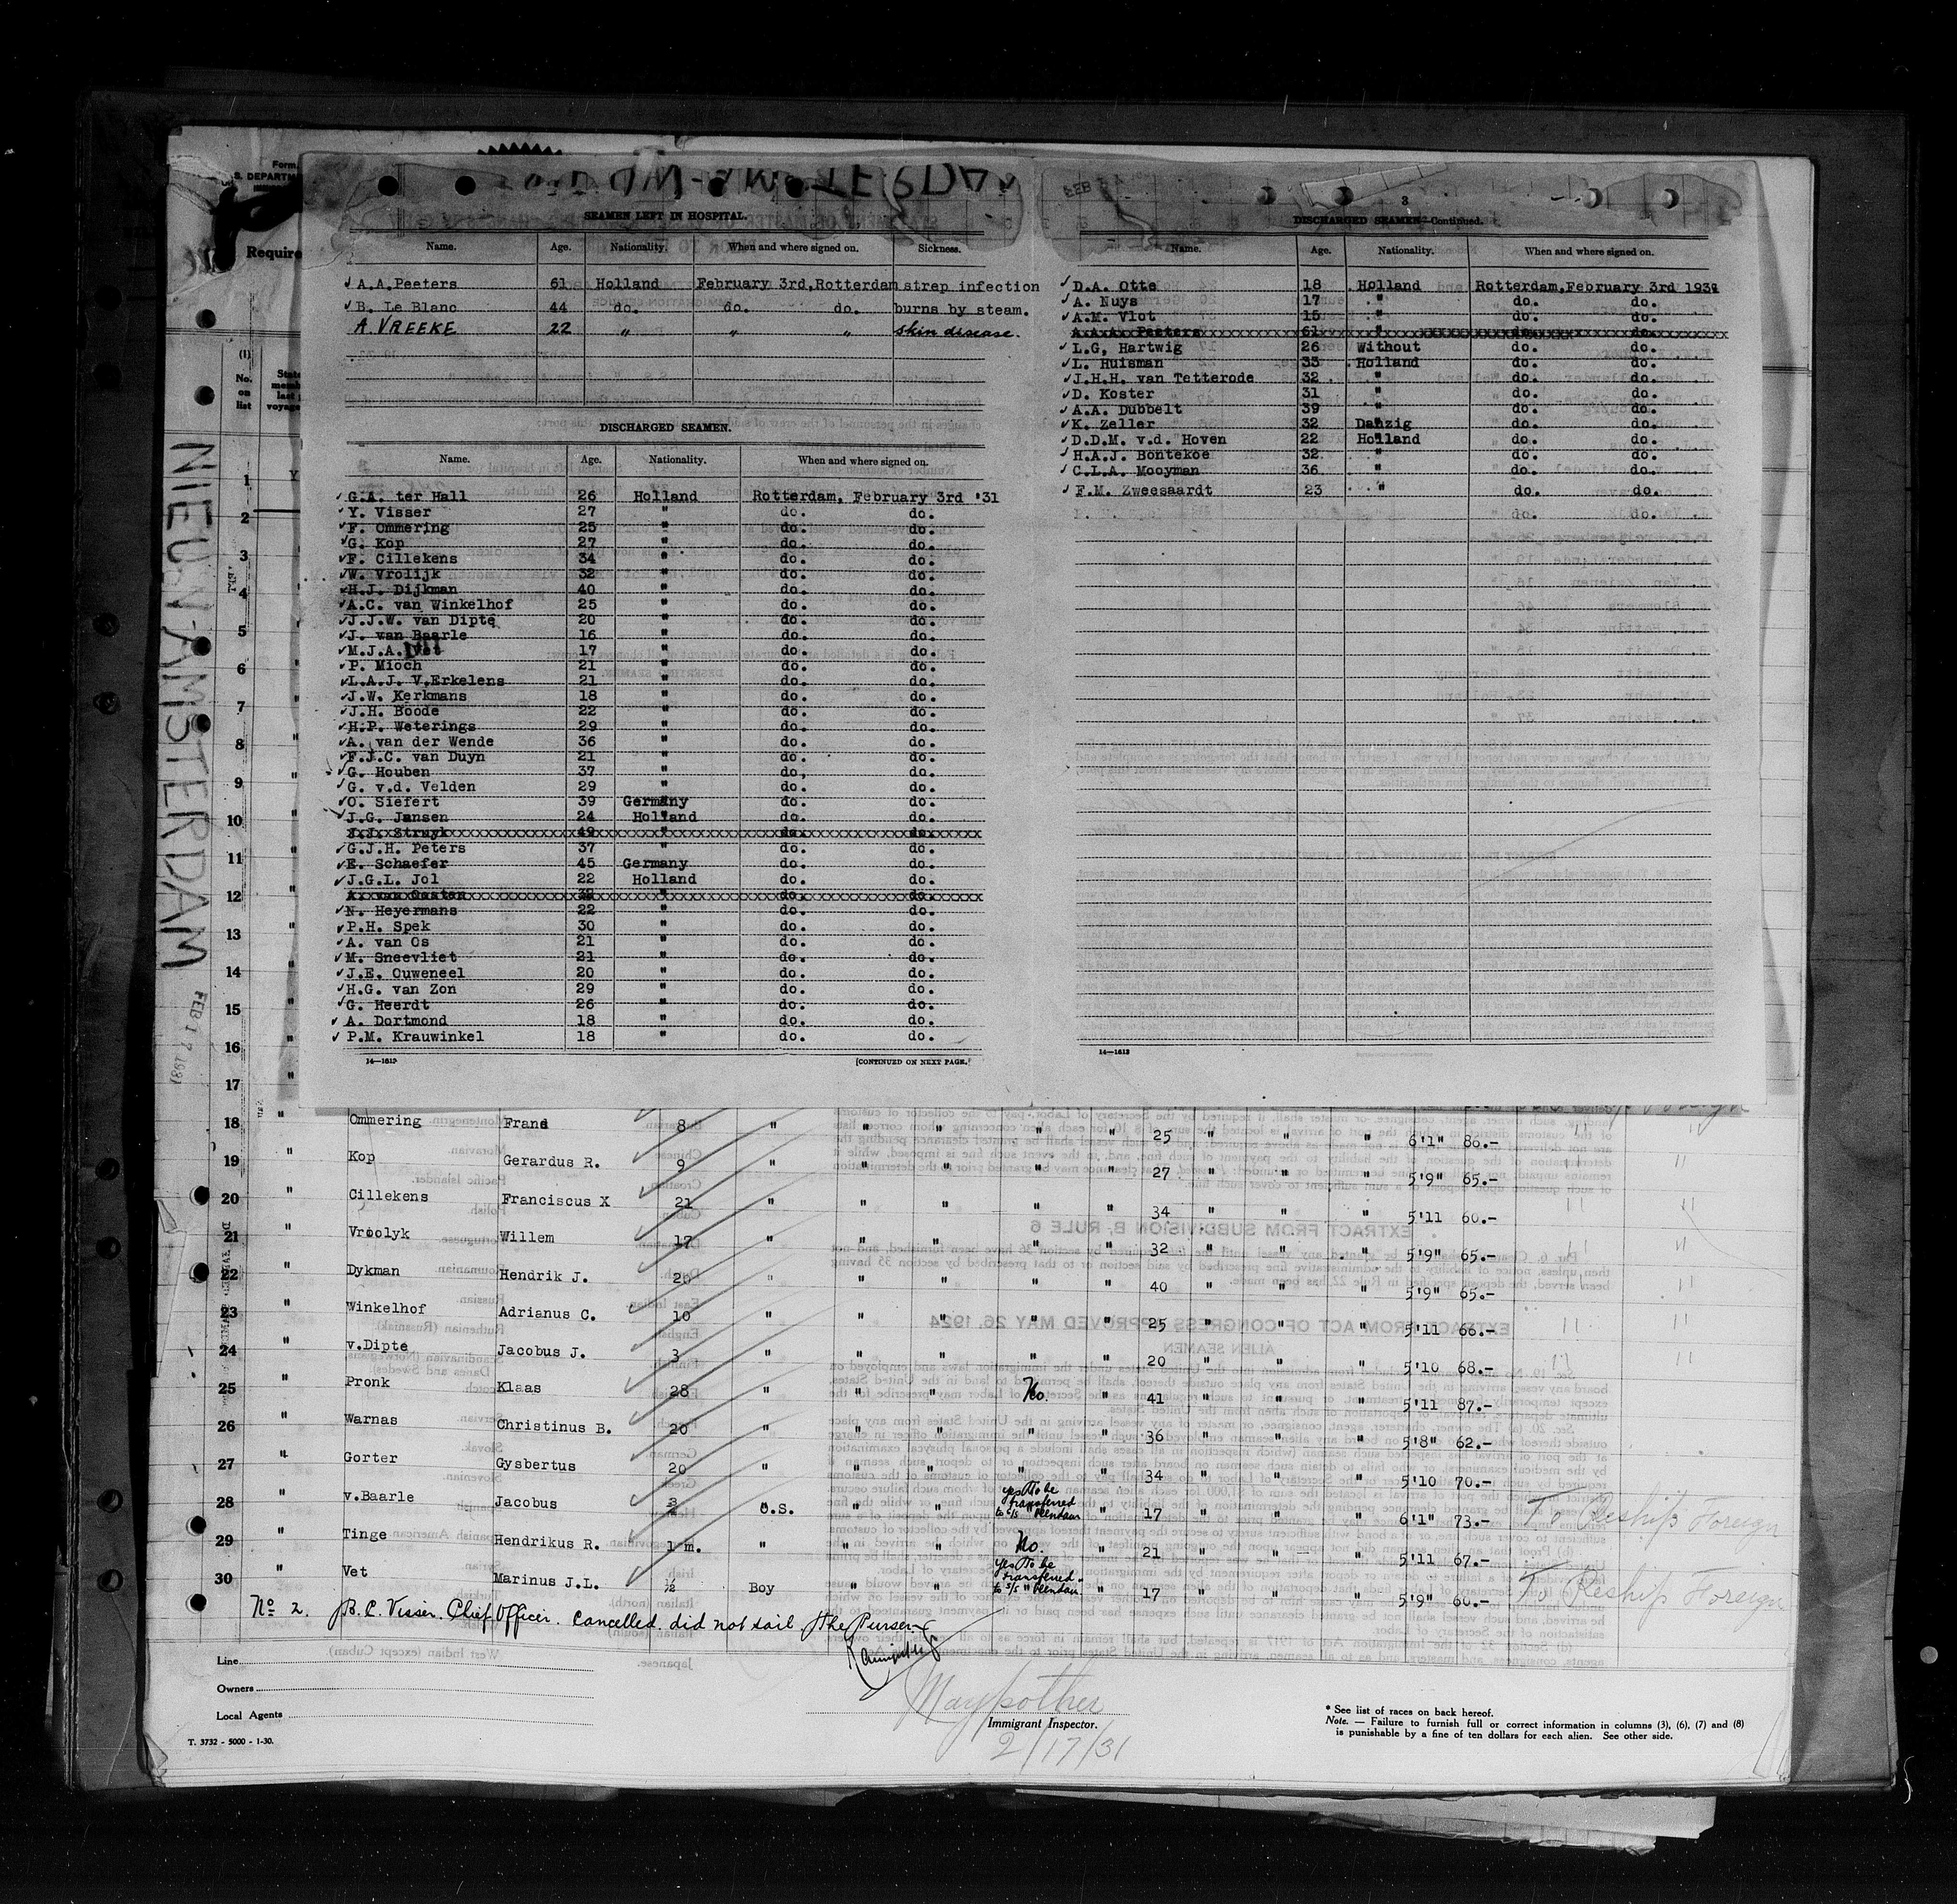 NIEUW-AMSTERDAM
FEB 17 1931
Form
S. DEPARTM
Require
(1)
No. on list
SEAMEN LEFT IN HOSPITAL.
Name. Age. Nationality. When and where signed on. Sickness.
A.A.Peeters 61 Holland February 3rd,Rotterdam strep infection
B. Le Blanc 44 do. do. do. burns by steam.
A. VREEKE 22 " " " skin disease.
DISCHARGED SEAMEN.
Name. Age. Nationality. When and where signed on.
G.A. ter Hall 26 Holland Rotterdam, February 3rd '31
Y. Visser 27 " do. do.
F. Ommering 25 " do. do.
G. Kop 27 " do. do.
F. Cillekens 34 " do. do.
W. Vrolijk 32 " do. do.
H.J. Dijkman 40 " do. do.
A.C. van Winkelhof 25 " do. do.
J.J.W. van Dipte 20 " do. do.
J. van Baarle 16 " do. do.
M.J.A. 17 " do. do.
P. Mioch 21 " do. do.
L.A.J. V.Erkelens 21 " do. do.
J.W. Kerkmans 18 " do. do.
J.H. Boode 22 " do. do.
H.P. Weterings 29 " do. do.
A. van der Wende 36 " do. do.
F.J.C. van Duyn 21 " do. do.
G. Houben 37 " do. do.
G. v.d. Velden 29 " do. do.
O. Siefert 39 Germany do. do.
J.G. Jansen 24 Holland do. do.
J.J. Struyk 49 " do. do.
G.J.H. Peters 37 " do. do.
E. Schaefer 45 Germany do. do.
J.G.L. Jol 22 Holland do. do.
A. van Oosten " do. do.
N. Heyermans 22 " do. do.
P.H. Spek 30 " do. do.
A. van Os 21 " do. do.
M. Sneevliet 21 " do. do.
J.E. Ouweneel 20 " do. do.
H.G. van Zon 29 " do. do.
G. Heerdt 26 " do. do.
A. Dortmond 18 " do. do.
P.M. Krauwinkel 18 " do. do.
14—1613 [CONTINUED ON NEXT PAGE.]
3
DISCHARGED SEAMEN—Continued.
Name. Age. Nationality. When and where signed on.
D.A. Otte 18 Holland Rotterdam,February 3rd 1931
A. Nuys 17 " do. do.
A.M. Vlot 15 " do. do.
A.A.A. Peeters 61 " do. do.
L.G, Hartwig 26 Without do. do.
L. Huisman 33 Holland do. do.
J.H.H. van Tetterode 32 " do. do.
D. Koster 31 " do. do.
A.A. Dubbelt 39 " do. do.
K. Zeller 32 Danzig do. do.
D.D.M. v.d. Hoven 22 Holland do. do.
H.A.J. Bontekoe 32 " do. do.
C.L.A. Mooyman 36 " do. do.
F.M. Zweesaardt 23 " do. do.
do. do.
14—1613
1
2
3
4
5
6
7
8
9
10
11
12
13
14
15
16
17
18 " Ommering Frans 8 " " " " " 25 " " " 6'1" 86.- "
19 " Kop Gerardus R. 9 " " " " " 27 " " " 5'9" 65.- "
20 " Cillekens Franciscus X 21 " " " " " 34 " " " 5'11 60.- "
21 " Vroolyk Willem 17 " " " " " 32 " " " 5'9" 65.- "
22 " Dykman Hendrik J. 20 " " " " " 40 " " " 5'9" 65.- "
23 " Winkelhof Adrianus C. 10 " " " " " 25 " " " 5'11 66.- "
24 " v.Dipte Jacobus J. 3 " " " " " 20 " " " 5'10 68.- "
25 " Pronk Klaas 28 " " " No. " 41 " " " 5'11 87.-
26 " Warnas Christinus B. 20 " " " " " 36 " " " 5'8" 62.-
27 " Gorter Gysbertus 20 " " " " " 34 " " " 5'10 70.-
28 " v.Baarle Jacobus 3 O.S. " " yes To be transferred to s/s "Veendam " 17 " " " 6'1" 73.- To Reship Foreign
29 " Tinge Hendrikus R. 1 m. " " " No. " 21 " " " 5'11 67.-
30 " Vet Marinus J.L. ½ Boy " " yes To be transferred to s/s "Veendam " 17 " " " 5'9" 60.- To Reship Foreign
No 2. B.C. Visser. Chief Officer. cancelled. did not sail the Purser
Line
Owners
Local Agents
T. 3732 - 5000 - 1-30.
Immigrant Inspector.
2/17/31
* See list of races on back hereof.
Note. — Failure to furnish full or correct information in columns (3), (6), (7) and (8)
is punishable by a fine of ten dollars for each alien. See other side.